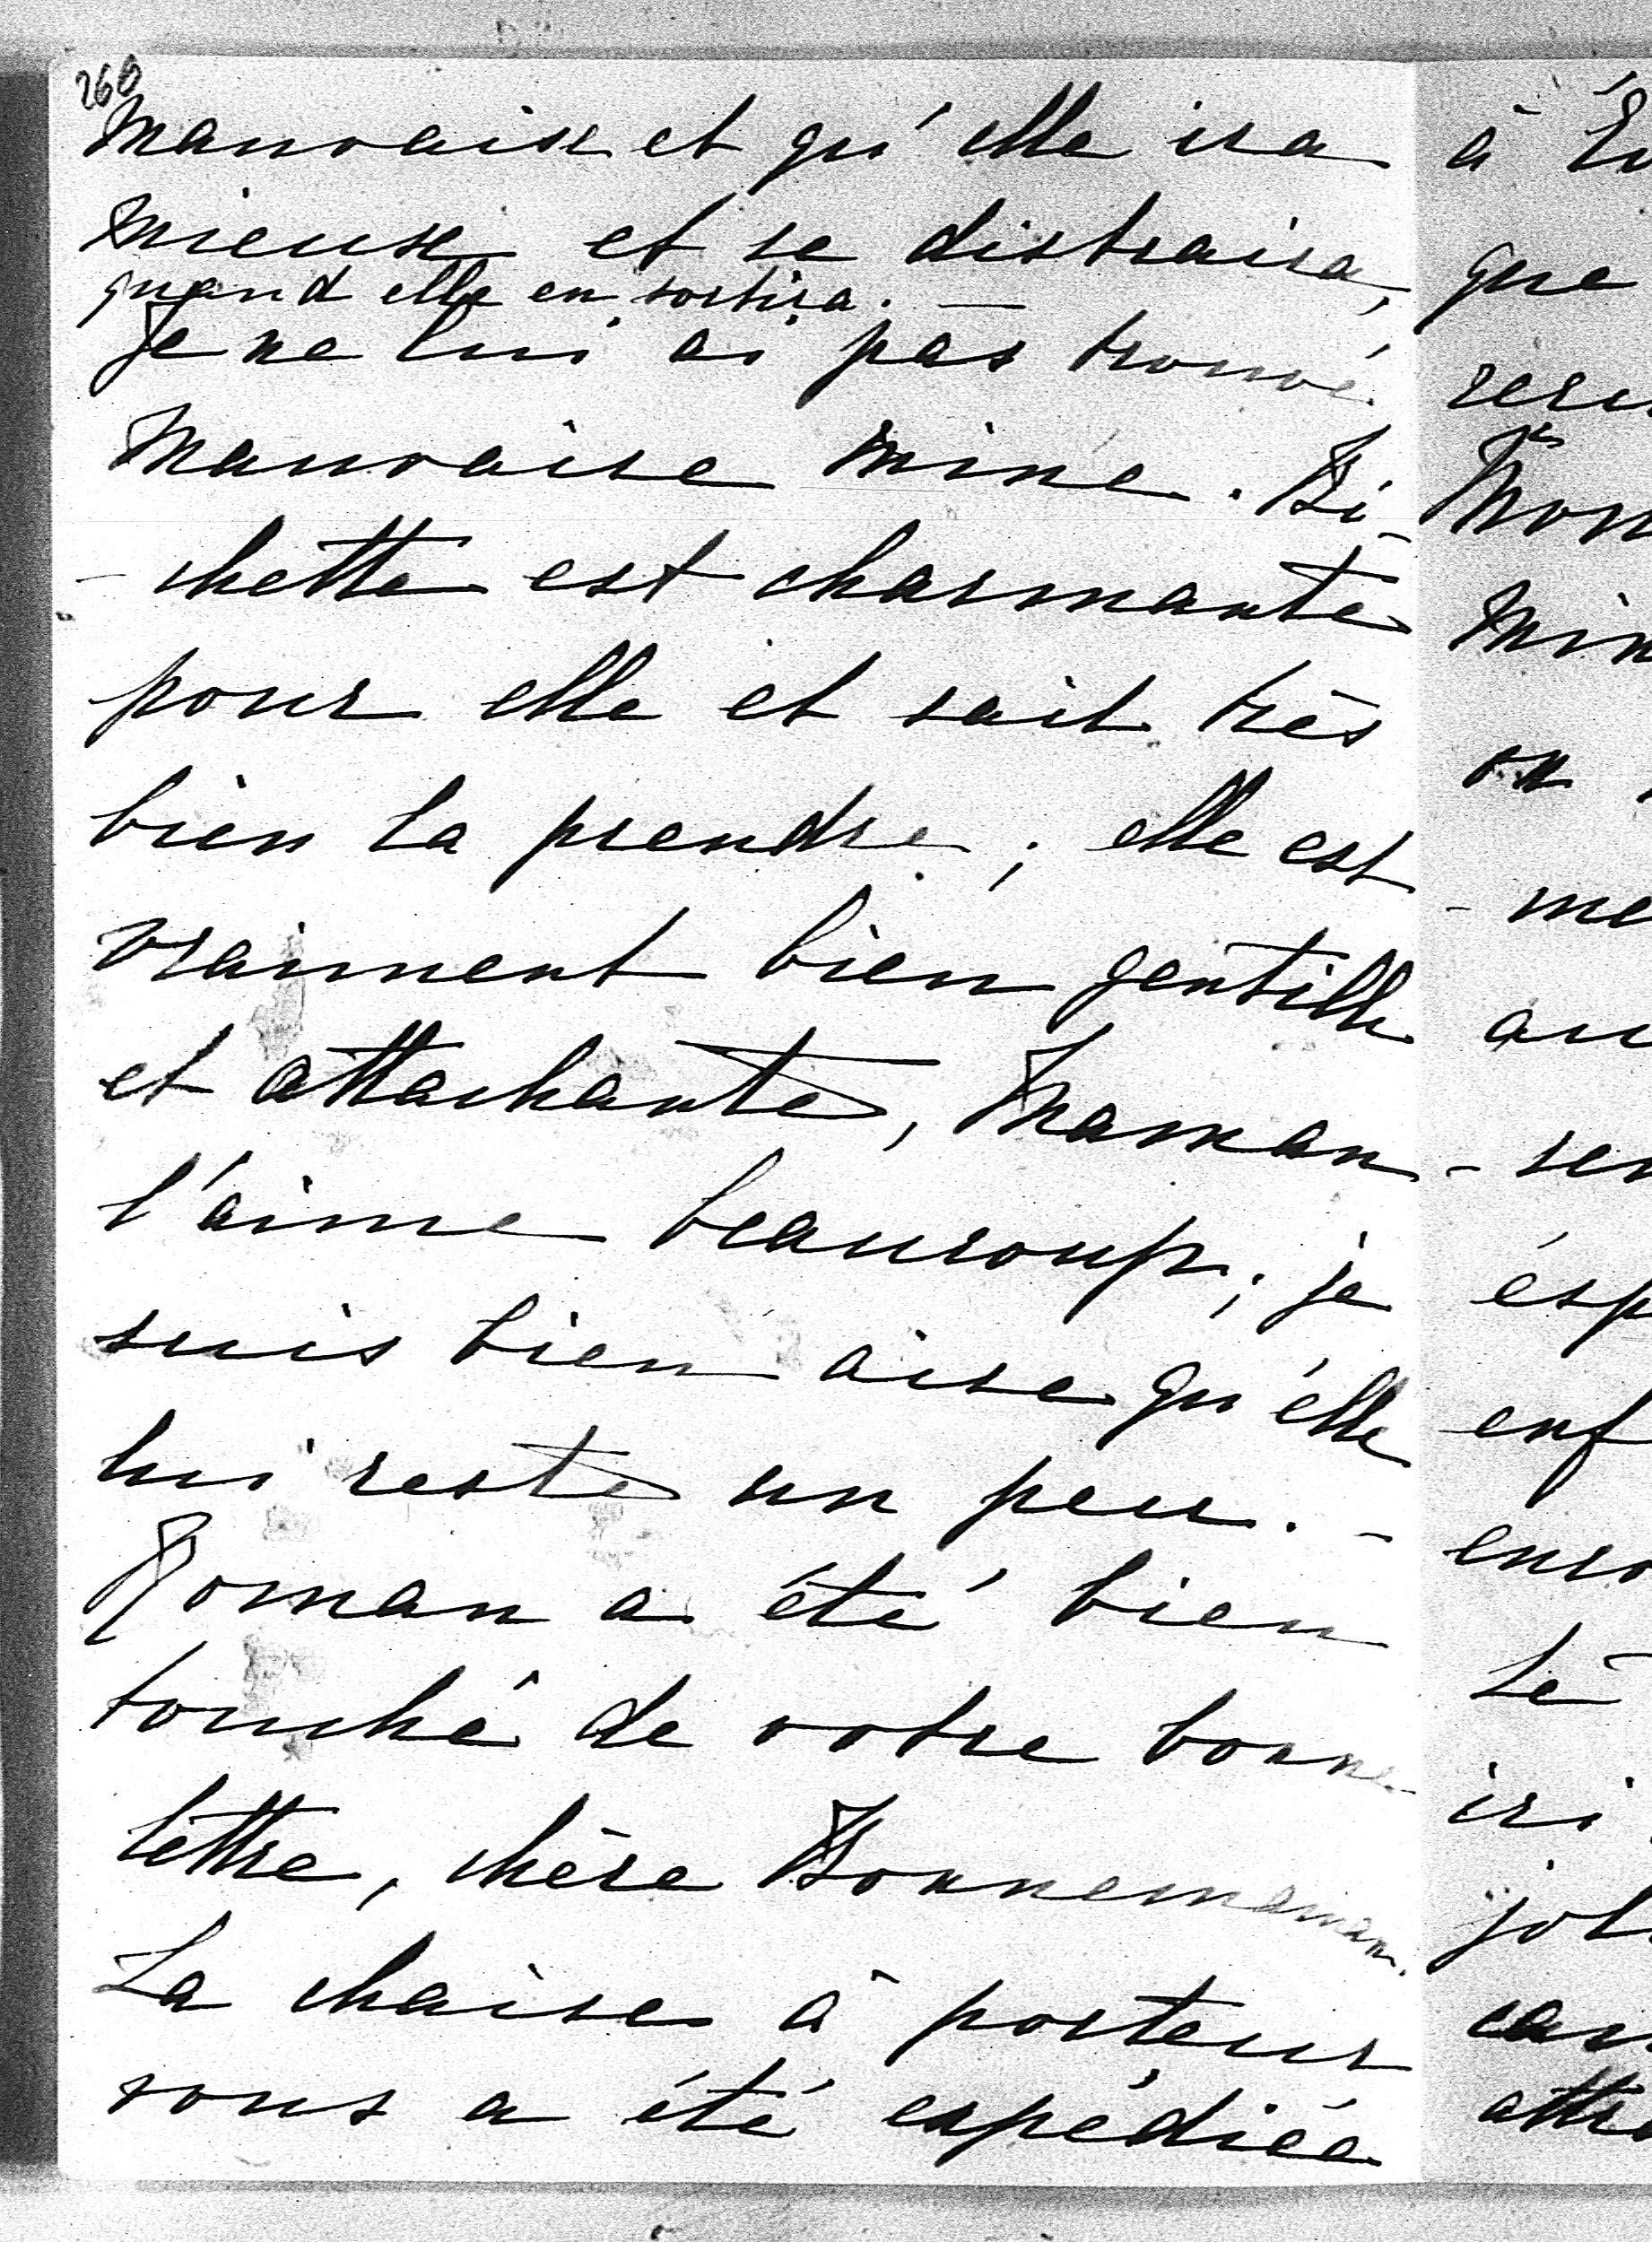 260
mauvaise et qu'elle ira
mieux et se distraira,
quand elle en sortira. —
Je ne lui ai pas trouvé
mauvaise mine. Bi-
-chette est charmante
pour elle et sait très
bien la prendre ; elle est
vraiment bien gentille
et attachante, Maman
l'aime beaucoup ; je
suis bien aise qu'elle
lui reste un peu. -
Roman a été bien
touché de votre bonne
lettre, chère Bonnemaman.
La chaise à porteur
vous a été expédiée
à
que
mon
min
on
- me
au
- sen
esp
enf
enco
té
ici
joli